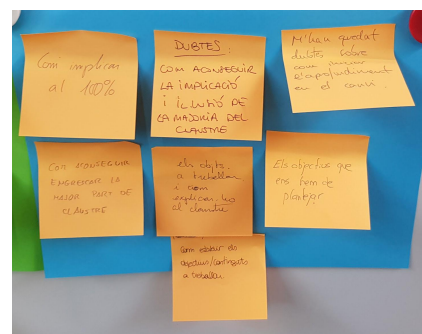 Com implicar
al 100%
DUBTES:
COM ACONSEGUIR
LA IMPLICACIÓ
I IL·LUSIÓ DE
LA MAJORIA DEL
CLAUSTRE
M'han quedat
dubtes sobre
com
l'aprofundiment
en el canvi.
COM ACONSEGUIR
ENGRESCAR LA
MAJOR PART DE
CLAUSTRE
els objts.
a treballar
i com
explicar-ho
al claustre
Els objectius que
ens hem de
plantejar
Com establir els
objectius/continguts
a treballar